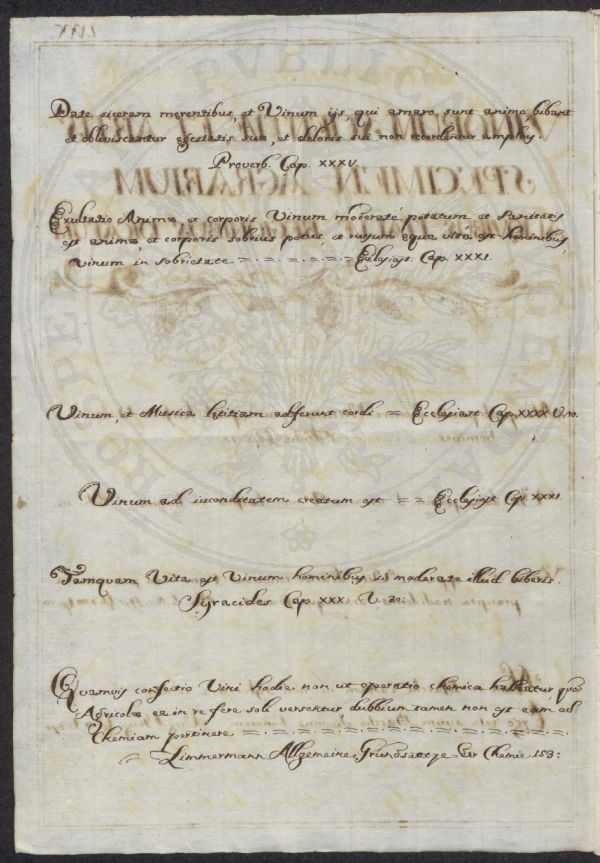 Date siceram merentibus, et Vinum ijs, qui amaro sunt animo bibant
et obliviscantur egestatis suæ, et doloris sui non recordentur amplius.
Proverb. Cap. XXXV.
Exultatio Animæ et corporis Vinum moderate potatum et Sanitatis
est animæ et corporis sobrius potus, et rursum æqua vita est hominibus
vinum in sobrietate = . = . = . = . = . = Eclesiast. Cap. XXXI.
Vinum, et Musica letitiam adferunt cordi = Ecclesiast. Cap. XXXX V. 20.
Vinum ad iucunditatem creatum est = = Ecclesiast Cap. XXXI.
Tamquam Vita est Vinum hominibus si moderate illud biberis.
Syracides Cap. XXX V. 32:
Quamvis confectio Vini hodie non ut operatio chemica habeatur quod
Agricolæ ea in re fere soli versentur dubbium tamen non est eam ad
Chemiam pertinere = . = . = . = . = . = . = . = . = . =
= Zimmermann Allgemeine Grundsattze der Chemie 153: